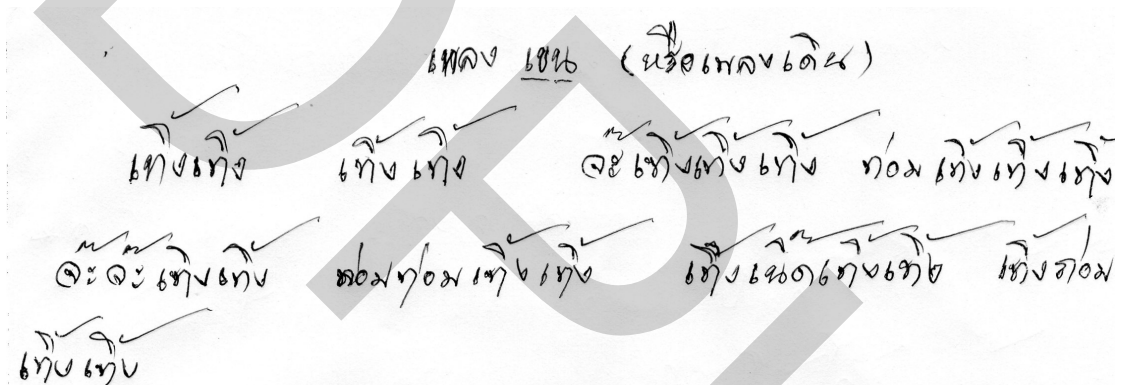 เพลง เชน (หรือเพลงเดิน)
เทิ้งเทิ้ง เทิ้งเทิ้ง จ๊ะเทิ้งเทิ้งเทิ้ง ท่อม เทิ้งเทิ้งเทิ้ง
จ๊ะจ๊ะเทิ้งเทิ้ง ท่อมท่อมเทิ้งเทิ้ง เทิ้งเน้ดเทิ้งเทิ้ง เทิ้งท่อม
เทิ้งเทิ้ง